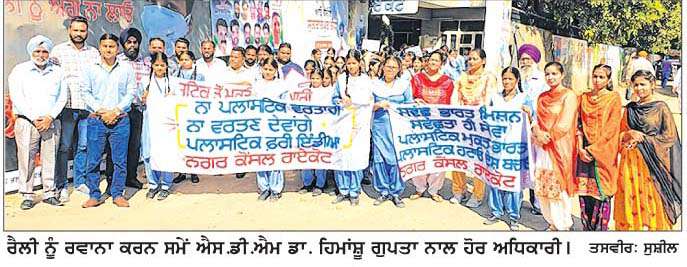 ਨਾ ਪਲਾਸਟਿਕ ਵਰਤਾਂਗੇ
ਨਾ ਵਰਤਣ ਦੇਵਾਂਗੇ
ਪਲਾਸਟਿਕ ਫ੍ਰੀ ਇੰਡੀਆ
ਨਗਰ ਕੌਂਸਲ ਰਾਏਕੋਟ
ਸਵੱਛ ਭਾਰਤ ਮਿਸ਼ਨ
ਸਵੱਛਤਾ ਹੀ ਸੇਵਾ
ਪਲਾਸਟਿਕ ਮੁਕਤ ਭਾਰਤ
ਪਲਾਸਟਿਕ ਹਟਾਓ
ਨਗਰ ਕੌਂਸਲ ਰਾਏਕੋਟ
ਰੈਲੀ ਨੂੰ ਰਵਾਨਾ ਕਰਨ ਸਮੇਂ ਐਸ.ਡੀ.ਐਮ ਡਾ. ਹਿਮਾਂਸ਼ੂ ਗੁਪਤਾ ਨਾਲ ਹੋਰ ਅਧਿਕਾਰੀ। ਤਸਵੀਰ: ਸੁਸ਼ੀਲ